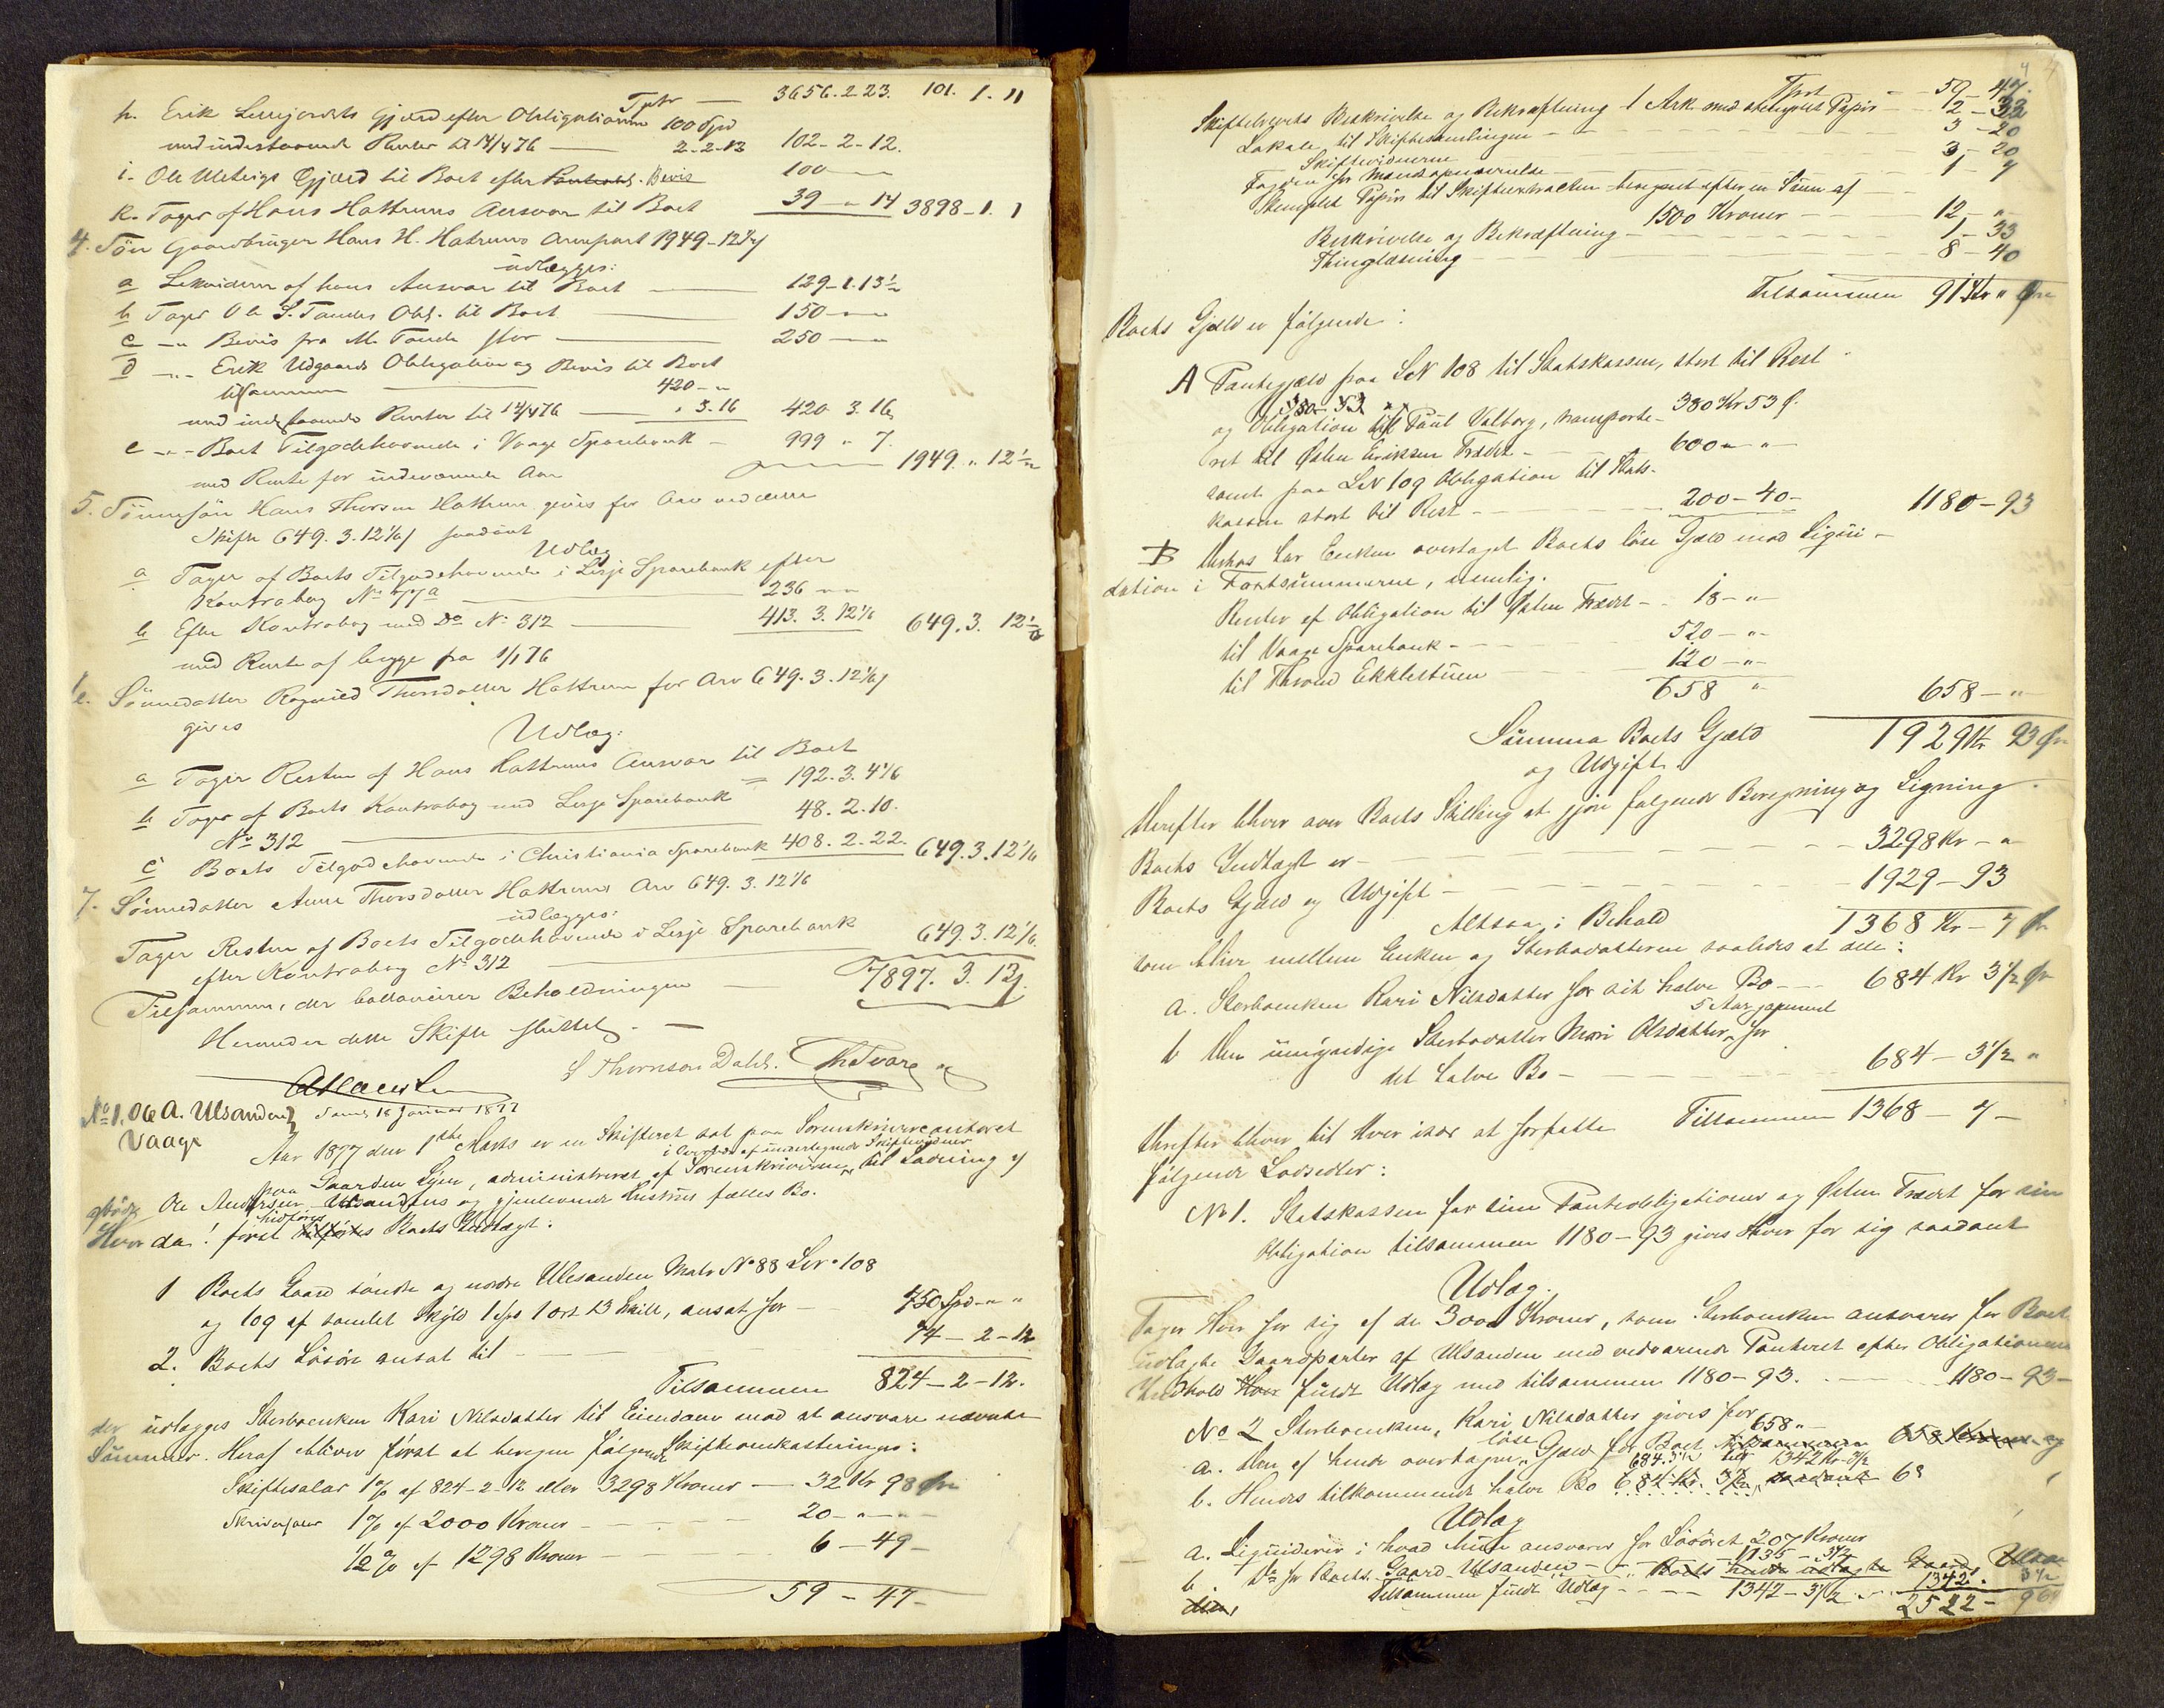 Tptr — 3656.2.23. 101. 1. 11
h. Erik Gjæld efter Obligationen 100 Spd
med indestaaende Renter til 14/4 76 — 2-2-12 102-2-12.
i. Ole Gjæld til Boet efter Bevis 100 — "
k. Tager af Hans Hattrems Ansvar til Boet 39 - " 14 3898-1. 1
4. Søn Gaardbruger Hans H. Hatrems Arvepart 1949-12½
udlægges:
a Lekviderer af hans Ansvar til Boet — 129-1.13½
b Tager O S. Tandes Obl. til Boet — 150-"-"
c -"- Bevis fra M. Tande stor — 250 -"-"
d -"- Erik Udgaards Obligation og Bevis til Boet
tilsammen — 420-"
med indestaaende Renter til 14/4 76 — " 3.16 420 3.16
e -"- Boet Tilgodehavende i Vaage Sparebank - 999 " 7.
med Rente for indeværende Aar — 1949. " 12½
5. Sønnesøn Hans Thorsen Hattrem gives for Arv ved dette
Skifte 649.3.12⅙ saadant
Udlæg
a Tager af Boets Tilgodehavende i Lesje Sparebank efter
Kontrabog No 77a — 236 " "
b Efter Kontrabog med Do No 312 — 413. 3. 12⅙ 649.3. 12⅙
med Rente af begge fra 1/1 76
6. Sønnedatter Ragnild Thorsdatter Hattrem for Arv 649.3.12⅙
gives
Udlæg:
a Tager Resten af Hans Hattrems Ansvar til Boet = 192.3.4⅙
b Tager af Boets Kontrabog med Lesje Sparebank
No 312 — 48.2.10.
c Boets Tilgodehavende i Christiania Sparebank 408.2.22. 649.3.12⅙
7. Sønnedatter Anne Thorsdatter Hattrems Arv 649.3.12⅙
udlægges:
Tager Resten af Boets Tilgodehavende i Lesje Sparebank
efter Kontrabog No 312 — 649.3.12⅙.
Tilsammen, der ballancerer Beholdningen — 7897. 3. 13.
Herunder dette Skifte sluttet. —
S Thomson Dahl.
No 1. Ole A. Ulsanden 18 Januar 1877
Vaage
Aar 1877 den 1ste Marts er en Skifteret sat paa Sorenskrivercontoret
i Overvær af undertegnede Skiftevidner
paa Gaarden Sjem, administreret af Sorenskriveren, til Ladning af
afdøde Ole Andersen Ulsandens og gjenlevende Hustrus fælles Bo.
Hvor da: først hidføres Boets Indtægt:
1 Boets Gaard søndre og nordre Ulesanden Matr No 88 Lno 108
og 109 af samlet Skyld 1 dlr 1 ort 13 Skill, ansat for — 750 Spd - " "
2. Boets Løsøre ansat til — 74 - 2 - 12
Tilsammen 824 - 2 - 12.
der udlægges Sterboenken Kari Nilsdatter til Eiendom mod at ansvare nævnte
Summer. Heraf bliver først at beregne følgende Skifteomkostninger:
Skiftesalar 1% af 824-2-12 eller 3298 Kroner — 32 Kr 98 Øre
Skriversalar 1% af 2000 Kroner — 20 - " - "
½ % af 1298 Kroner — 6 - 49 -
59 - 47 -
4
Tprt - 59 - 47.
Skiftebrevets Beskrivelse og Bekræftning 1 Ark med stemplet Papir — 12 - 32
Lokale til Skiftesamlingen — 3 - 20
Skiftevidnerne — 3 - 20
Fogden for — 1 - 7
Stemplet Papir til Skifteextracten beregnet efter en Sum af
1500 Kroner — 12 - "
Beskrivelse og Bekræftning — 1 - 33
Thinglæsning — 8 - 40
Tilsammen 91 Kr " Øre
Boets Gjæld er følgende:
A Pantegjæld paa LN 108 til Statskassen, stort til Rest
380 - 53 — 380 Kr 53 Ø.
og Obligation til Paul Valborg, transporte-
ret til Østen Eriksen Trædet — 600 " "
samt paa LN 109 Obligation til Stats-
kassen stort til Rest — 200 - 40 - 1180 - 93
B Desuden har Enken overtaget Boets løse Gjæld mod Liqui-
dation i Taxtsummerne, nemlig.
Renter af Obligation til Østen Trædet — 18 - "
til Vaage Sparebank — 520 - "
til Trond Ekklestuen — 120 - "
658 " 658 - "
Summa Boets Gjæld
og Udgift 1929 Kr 93 Øre
Derefter bliver over Boets Stilling at gjøre følgende Beregning og Ligning
Boets Indtægt er — 3298 Kr - "
Boets Gjæld og Udgift — 1929 - 93
Altsaa i Behold 1368 Kr - 7 Ør
som bliver mellem Enken og Sterbodatteren saaledes at dele:
a. Sterboenken Kari Nilsdatter for sit halve Bo — 684 Kr 3½ Ør
5 Aar gammel
b Den umyndige Sterbodatter Mari Olsdatter, for
det halve Bo — 684 - 3½ "
Tilsammen 1368 - 7 -
Derefter bliver til Hver især at forfatte
følgende Lodsedler:
No 1. Statskassen for sine Panteobligationer og Østen Trædet for sin
Obligation tilsammen 1180 - 93 gives Hver for sig saadant
Udlæg.
Tager Hver for sig af de 3000 Kroner, som Sterboenken ansvarer for Boets
udlagte Gaardparter af Ulsanden med vedvarende Panteret efter Obligationens
Indhold Hver fuldt Udlæg med tilsammen 1180 - 93. — 1180 - 93 -
No 2 Sterboenken, Kari Nilsdatter gives for
658 " -
a. Den af hende overtagne løse Gjæld for Boet 658
684.3½ tils 1342 Kr 3½
b. Hendes tilkommende halve Bo 684 Kr. 3½, saadant 68
Udlæg
a. Liquiderer i hvad hun ansvarer for Løsøret 207 Kroner
b. Do for Boets Gaard Ulsanden — 1135 - 3½ Boets hende udlagte Gaard
Tilsammen fuldt Udlæg — 1342 - 3½ 1342. 3½
2522 - 96